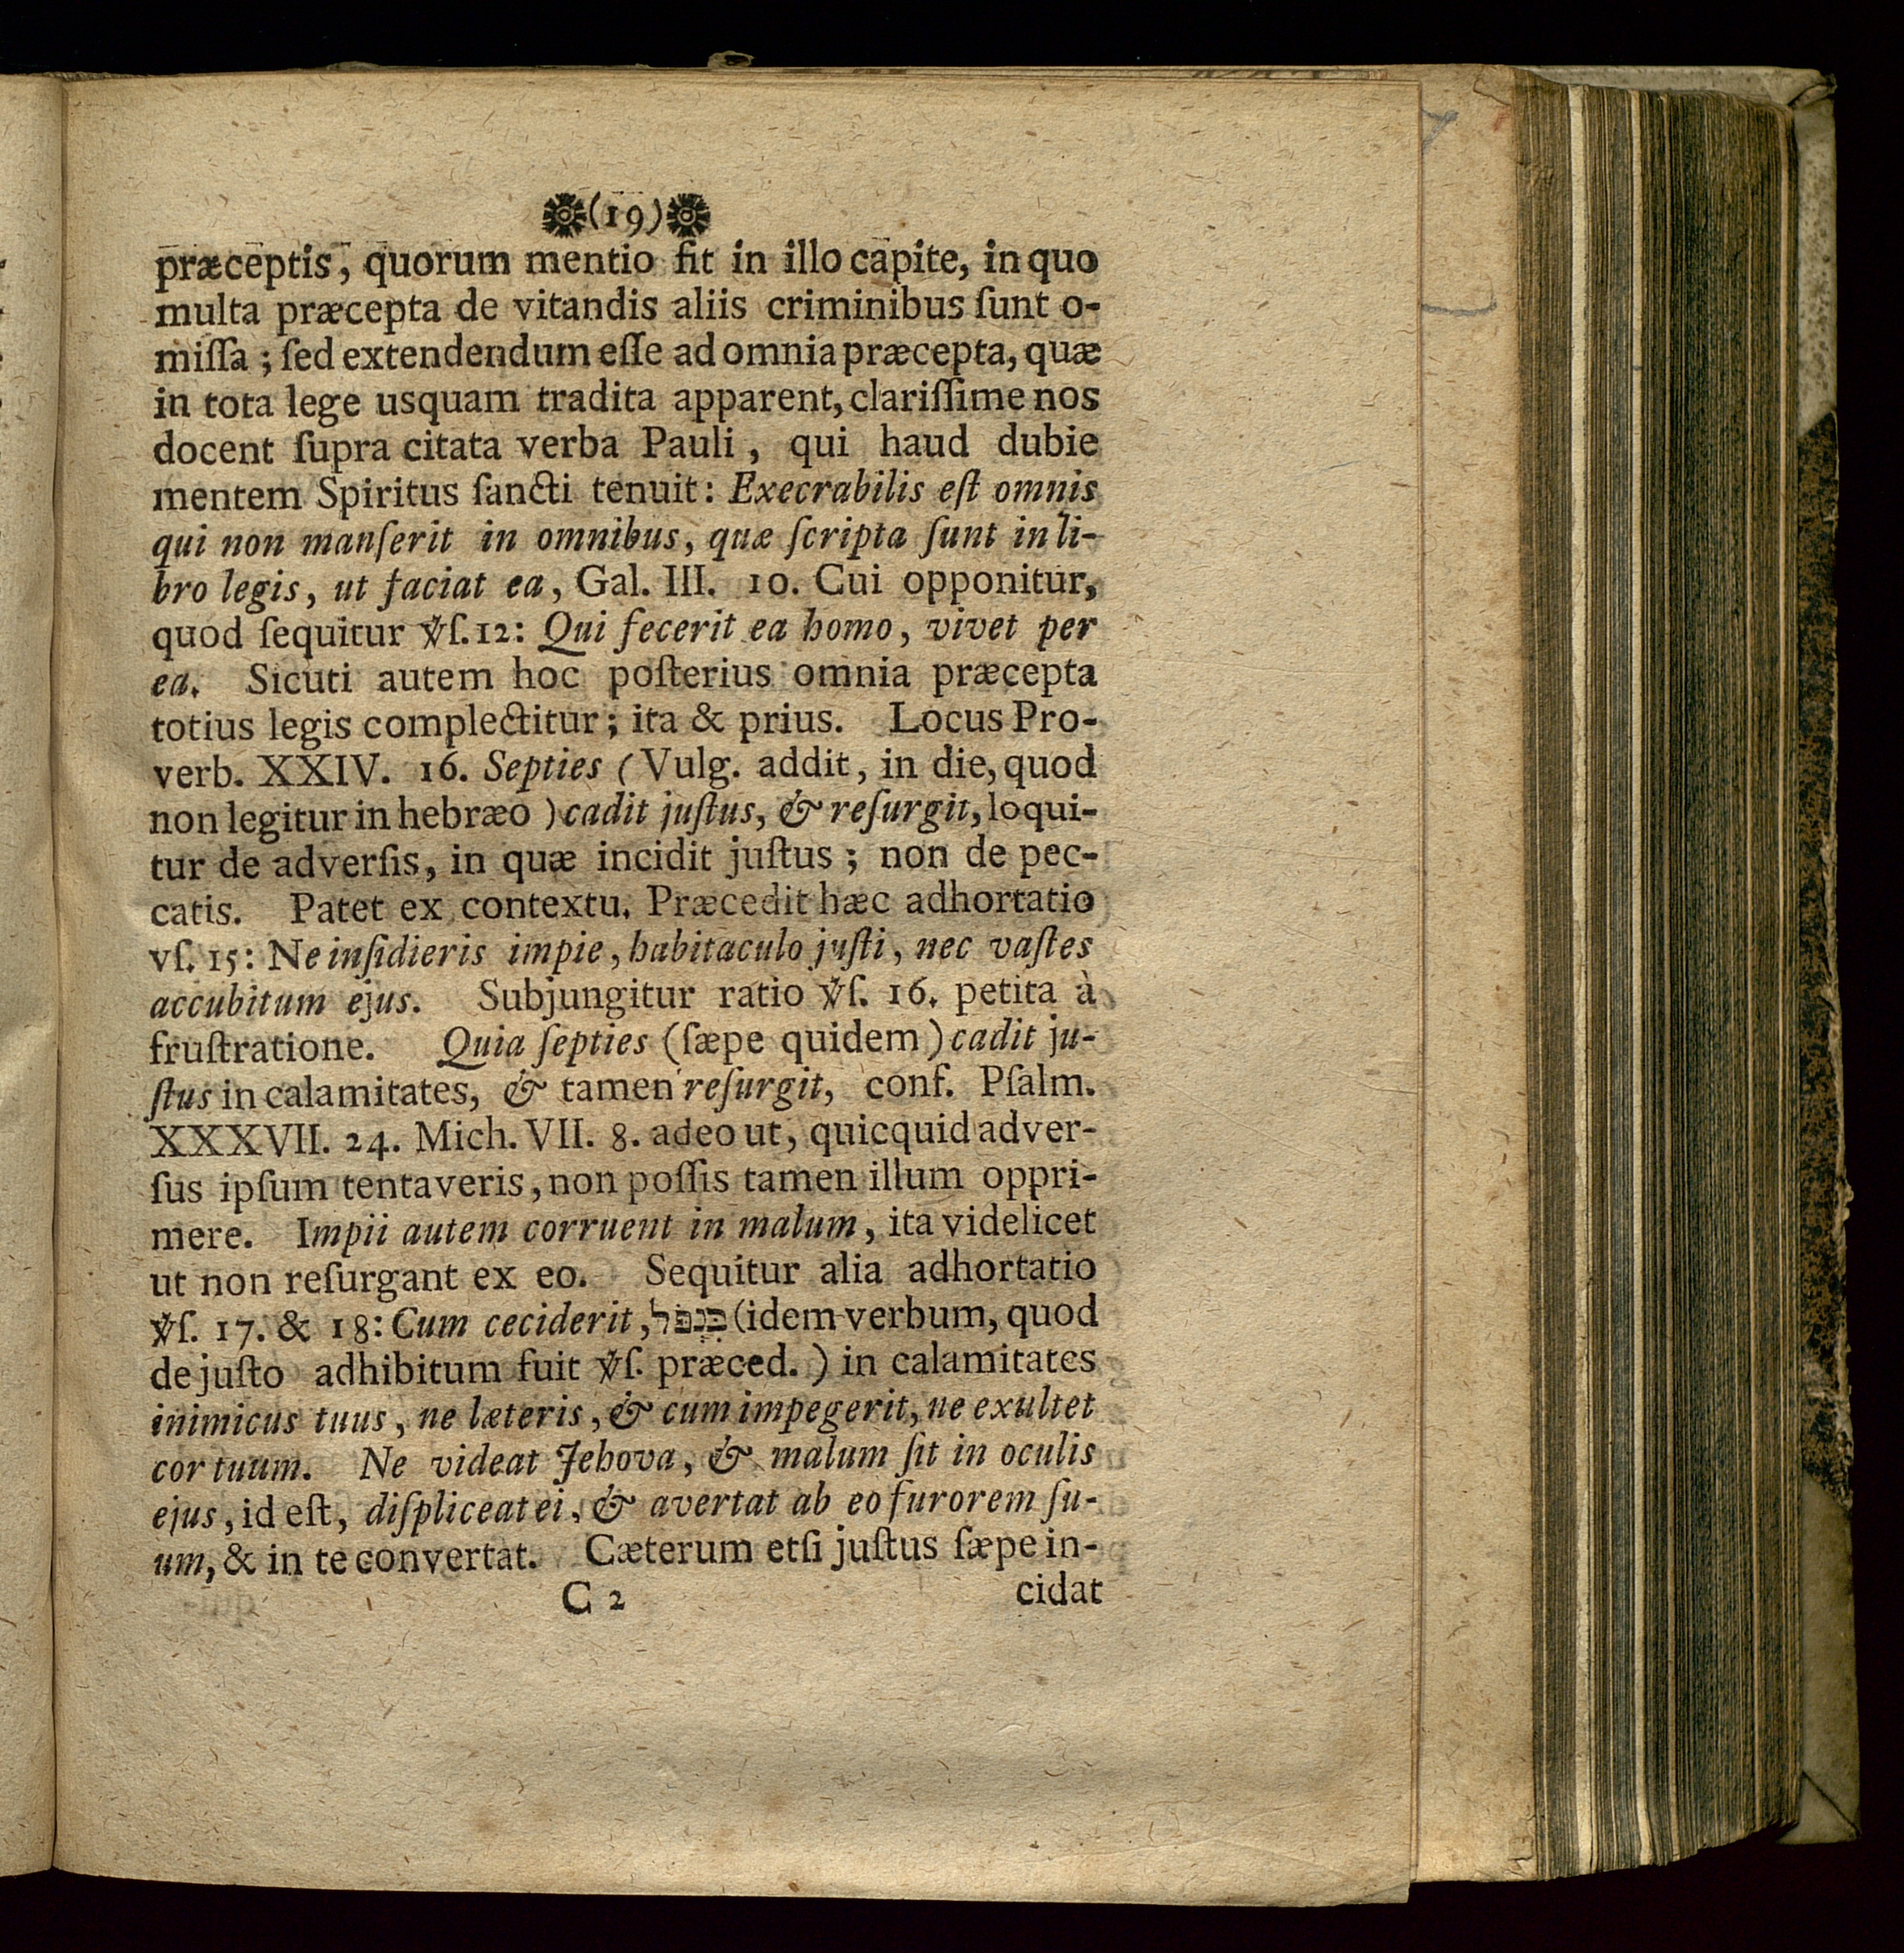 (19)
præceptis, quorum mentio fit in illo capite, in quo
multa præcepta de vitandis aliis criminibus ſunt o-
miſſa; ſed extendendum eſſe ad omnia præcepta, quæ
in tota lege usquam tradita apparent, clariſſime nos
docent ſupra citata verba Pauli, qui haud dubie
mentem Spiritus ſancti tenuit: Execrabilis eſt omnis
qui non manſerit in omnibus, quæ ſcripta ſunt in li-
bro legis, ut faciat ea, Gal. III. 10. Cui opponitur,
quod ſequitur ℣ſ. 12: Qui fecerit ea homo, vivet per
ea. Sicuti autem hoc poſterius omnia præcepta
totius legis complectitur; ita & prius. Locus Pro-
verb. XXIV. 16. Septies (Vulg. addit, in die, quod
non legitur in hebræo) cadit juſtus, & reſurgit, loqui-
tur de adverſis, in quæ incidit juſtus; non de pec-
catis. Patet ex contextu. Præcedit hæc adhortatio
vſ. 15: Ne inſidieris impie, habitaculo juſti, nec vaſtes
accubitum ejus. Subjungitur ratio ℣ſ. 16. petita à
fruſtratione. Quia ſepties (ſæpe quidem) cadit ju-
ſtus in calamitates, & tamen reſurgit, conf. Pſalm.
XXXVII. 24. Mich. VII. 8. adeo ut, quicquid adver-
ſus ipſum tentaveris, non poſſis tamen illum oppri-
mere. Impii autem corruent in malum, ita videlicet
ut non reſurgant ex eo. Sequitur alia adhortatio
℣ſ. 17. & 18: Cum ceciderit, בִּנְפֹל (idem verbum, quod
de juſto adhibitum fuit ℣ſ. præced.) in calamitates
inimicus tuus, ne læteris, & cum impegerit, ne exultet
cor tuum. Ne videat Jehova, & malum ſit in oculis
ejus, id eſt, diſpliceat ei, & avertat ab eo furorem ſu-
um, & in te convertat. Cæterum etſi juſtus ſæpe in-
C 2 cidat